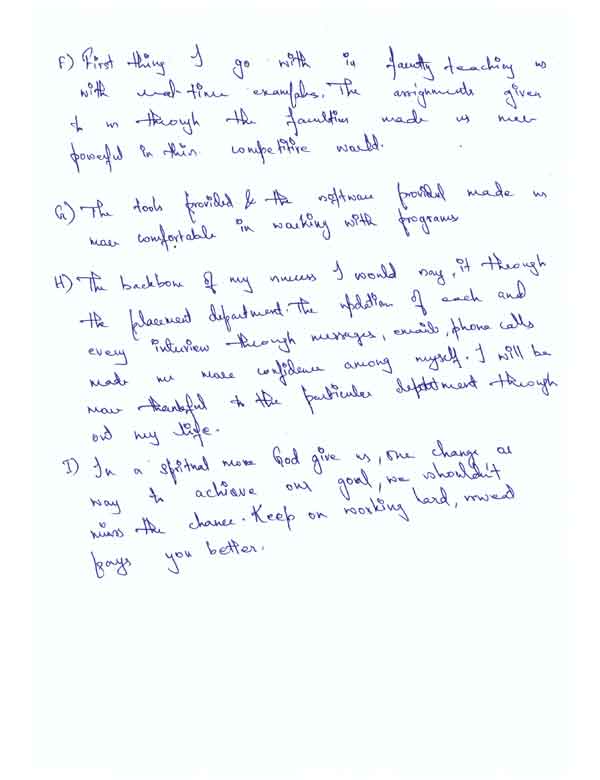 F) First thing I go with in faculty teaching us
with real-time examples. The assignments given
to us through the faculties made us more
powerful in this competitive world.
G) The tools provided & the software provided made us
more comfortable in working with programs
H) The backbone of my success I would say, it through
the placement department. The updation of each and
every interview through messages, emails, phone calls
made me more confidence among myself. I will be
more thankful to the particular department through
out my life.
I) In a spritual move God give us, one change or
way to achieve our goal, we shouldn't
miss the chance. Keep on working hard, sweat
pays you better.